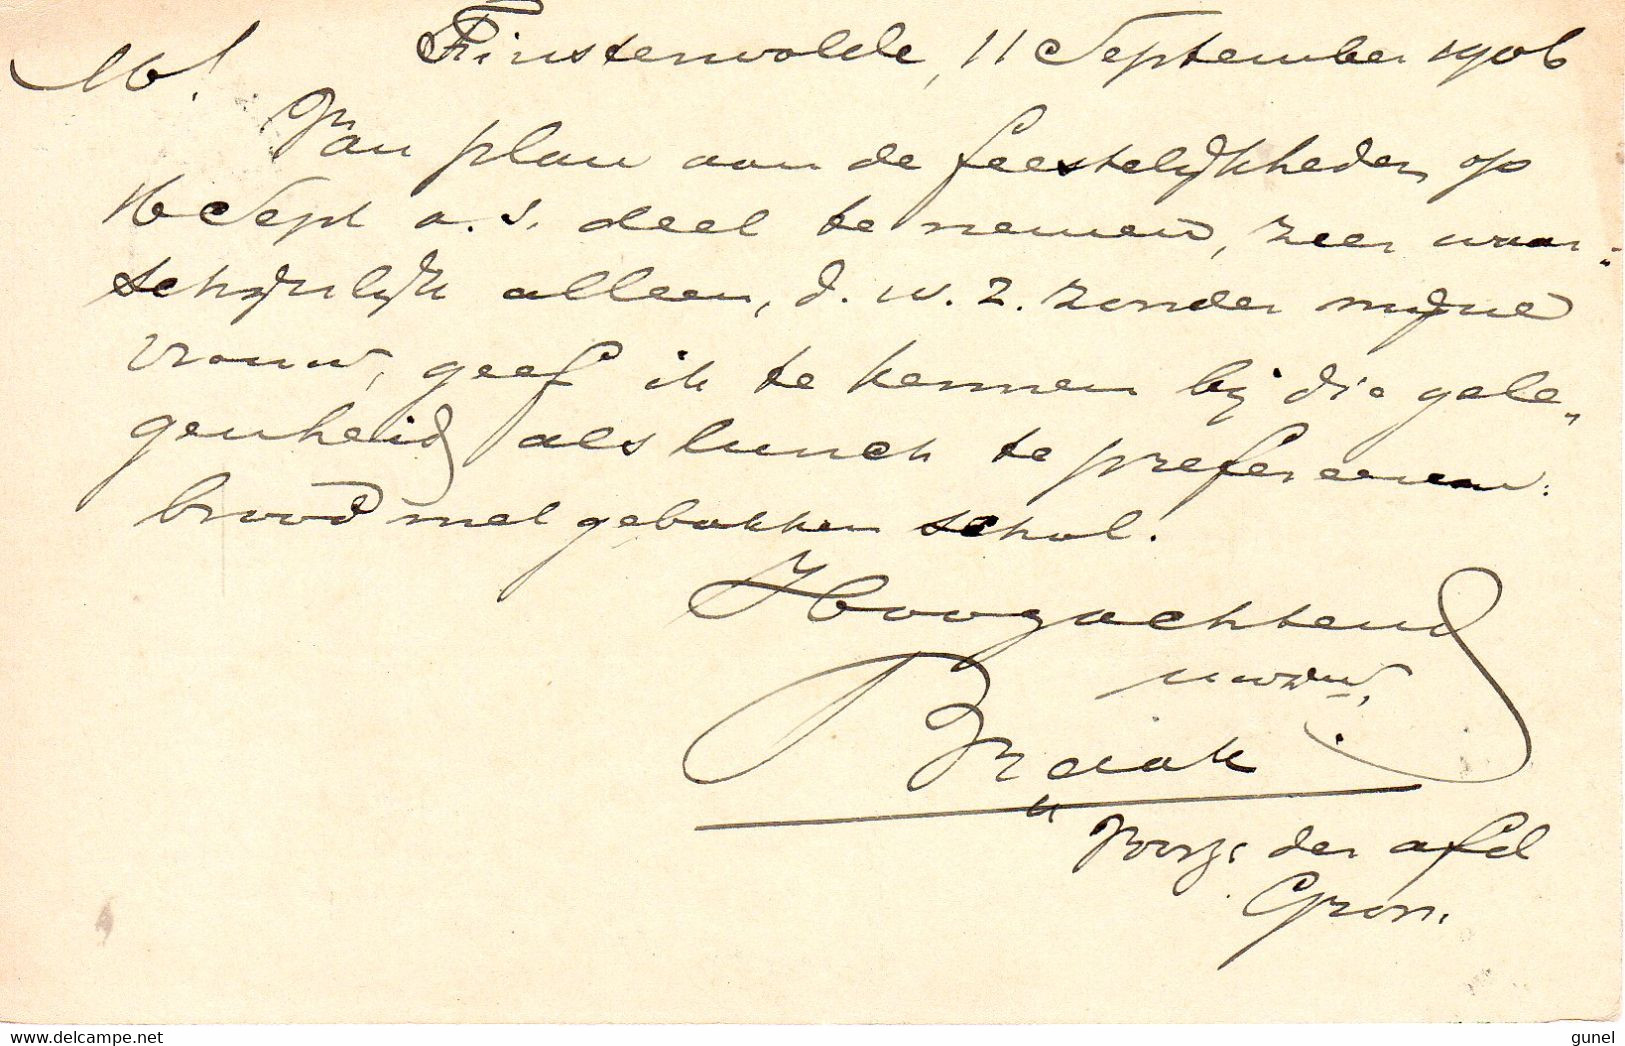 M!
Finsterwolde, 11 September 1906
Van plan aan de feestelijkheden op
16 Sept a.s. deel te nemen, zeer waar-
schijnlijk alleen, d.w.z. zonder mijne
vrouw, geef ik te kennen bij die gele-
genheid als lunch te prefereeren:
brood met gebakken schol.
Hoogachtend
uwdw,
Voorz. der afd
Gron.
gunel
www.delcampe.net